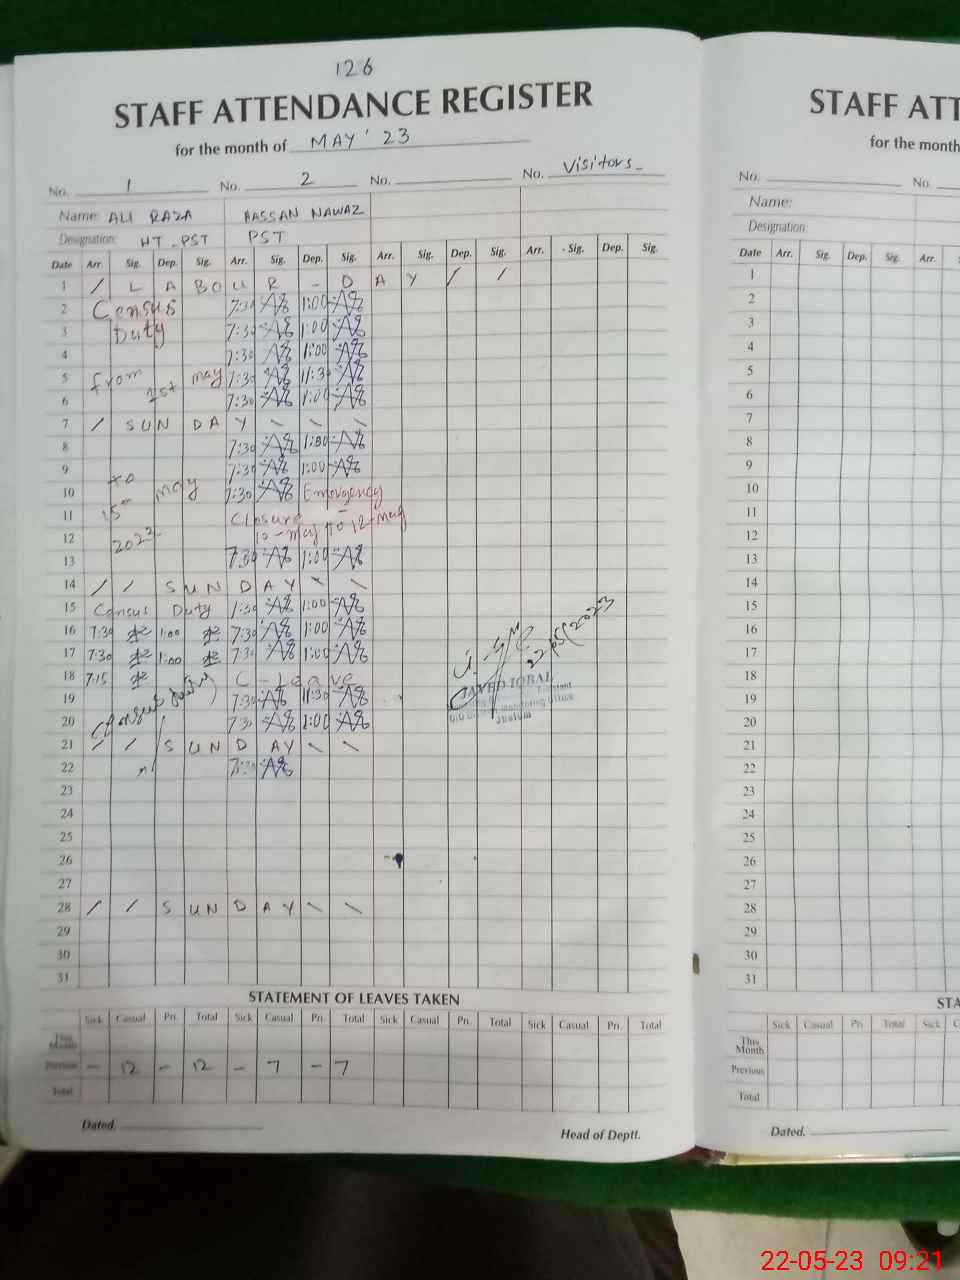 126
STAFF ATTENDANCE REGISTER
for the month of MAY' 23
No. 1 No. 2 No. No. Visitors
Name: ALI RAZA HASSAN NAWAZ
Designation: HT-PST PST
Date Arr. Sig. Dep. Sig. Arr. Sig. Dep. Sig. Arr. Sig. Dep. Sig. Arr. Sig. Dep. Sig.
1 / L A B O U R - D A Y / /
2 Census 7:30 1:00
3 Duty 7:30 1:00
4 7:30 1:00
5 from 1st may 7:30 11:30
6 7:30 1:00
7 / S U N D A Y \ \ \
8 7:30 1:00
9 to 7:30 1:00
10 may 7:30 Emergency
11 15 Closure
12 2023 10-may to 12-may
13 7:30 1:00
14 / / S U N D A Y \ \
15 Census Duty 7:30 1:00
16 7:30 1:00 7:30 1:00
17 7:30 1:00 7:30 1:00
18 7:15 C - Leave
19 (Census duty) 7:30 11:30
20 7:30 1:00
21 / / S U N D A Y \ \
22 7:30
23
24
25
26
27
28 / / S U N D A Y \ \
29
30
31
22/05/2023
JAVED IQBAL
Monitoring Office
Jhelum
STATEMENT OF LEAVES TAKEN
Sick Casual Pri. Total Sick Casual Pri. Total Sick Casual Pri. Total Sick Casual Pri. Total
This Month
Previous - 12 - 12 - 7 - 7
Total
Dated. Head of Deptt.
STAFF ATT
for the month
No. No.
Name:
Designation:
Date Arr. Sig. Dep. Sig. Arr.
1
2
3
4
5
6
7
8
9
10
11
12
13
14
15
16
17
18
19
20
21
22
23
24
25
26
27
28
29
30
31
STA
Sick Casual Pri. Total Sick C
This Month
Previous
Total
Dated.
22-05-23 09:21